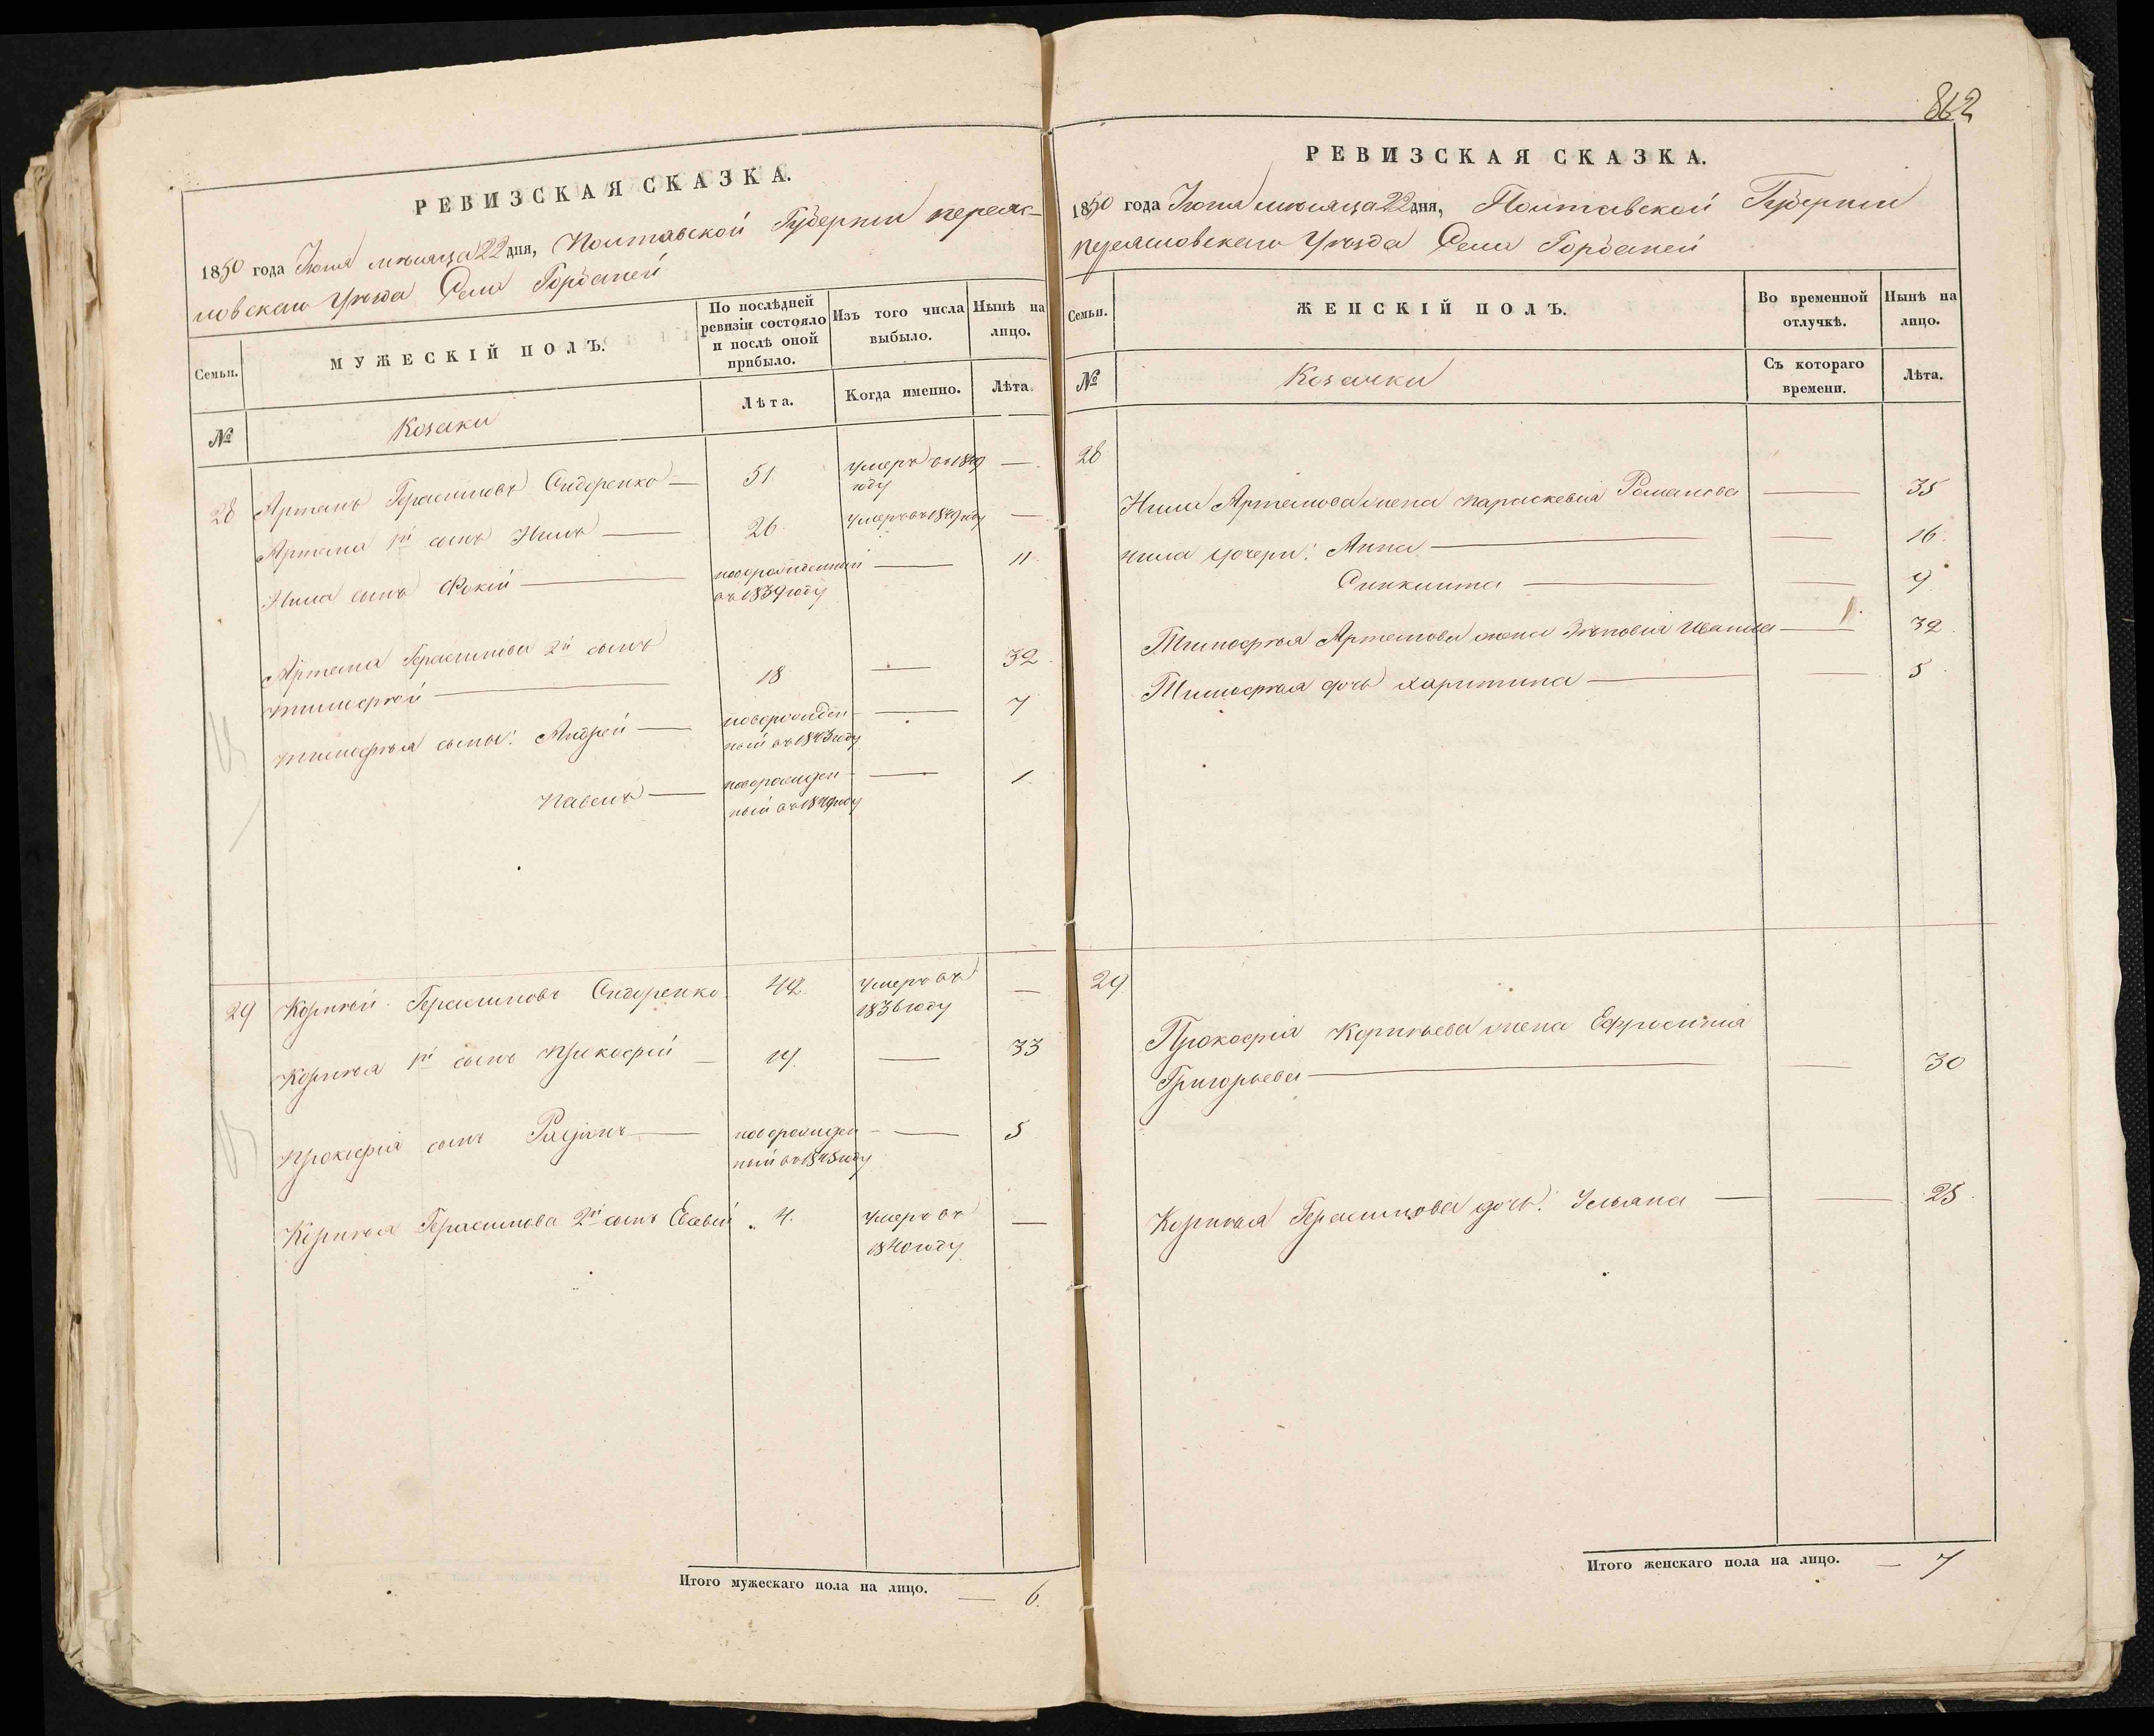 РЕВИЗСКАЯ СКАЗКА.
1850 года Июня месяца 22 дня, Полтавской Губернии переяс-
ловскаго Уезда Села Горбаней
Семьи.
МУЖЕСКІЙ ПОЛЪ.
По послѣдней ревизіи состояло и послѣ оной прибыло.
Изъ того числа выбыло.
Нынѣ на лицо.
№
Козаки
Лѣта.
Когда именно.
Лѣта.
28 Артемъ Герасимовъ Сидоренко — 51. умеръ въ 1849 году —
Артема 1й сынъ Нилъ — 26. умеръ въ 1849 году —
Нила сынъ Фокій — новорожденный въ 1839 году — 11.
Артема Герасимова 2й сынъ
тимофей — 18 — 32.
тимофея сыны: Андрей — новорожден-
ный въ 1843 году — 7
павелъ — новорожден-
ный въ 1849 году — 1.
29 Корней Герасимовъ Сидоренко 42. умеръ въ
1836 году —
Корнея 1й сынъ прокофій — 19. — 33
прокофія сынъ Радіонъ — новорожден-
ный въ 1845 году — 5
Корнея Герасимова 2й сынъ Евсевій. 4. умеръ въ
1840 году —
Итого мужескаго пола на лицо. — 6.
862
РЕВИЗСКАЯ СКАЗКА.
1850 года Июня месяца 22 дня, Полтавской Губернии
переясловскаго Уезда Села Горбаней
Семьи.
ЖЕНСКІЙ ПОЛЪ.
Во временной отлучкѣ.
Нынѣ на лицо.
№
Козачки
Съ котораго времени.
Лѣта.
28
Нила Артемова жена параскевія Романова — 35
нила дочери: Анна — 16.
Синклита — 9
Тимофея Артемова жена Зѣновія Иванова — 32.
Тимофея дочь харитина — 5
29
Прокофія Корнеева жена Ефросинія
Григорьева — 30
Корнея Герасимова дочь: Ульяна — 25.
Итого женскаго пола на лицо. — 7